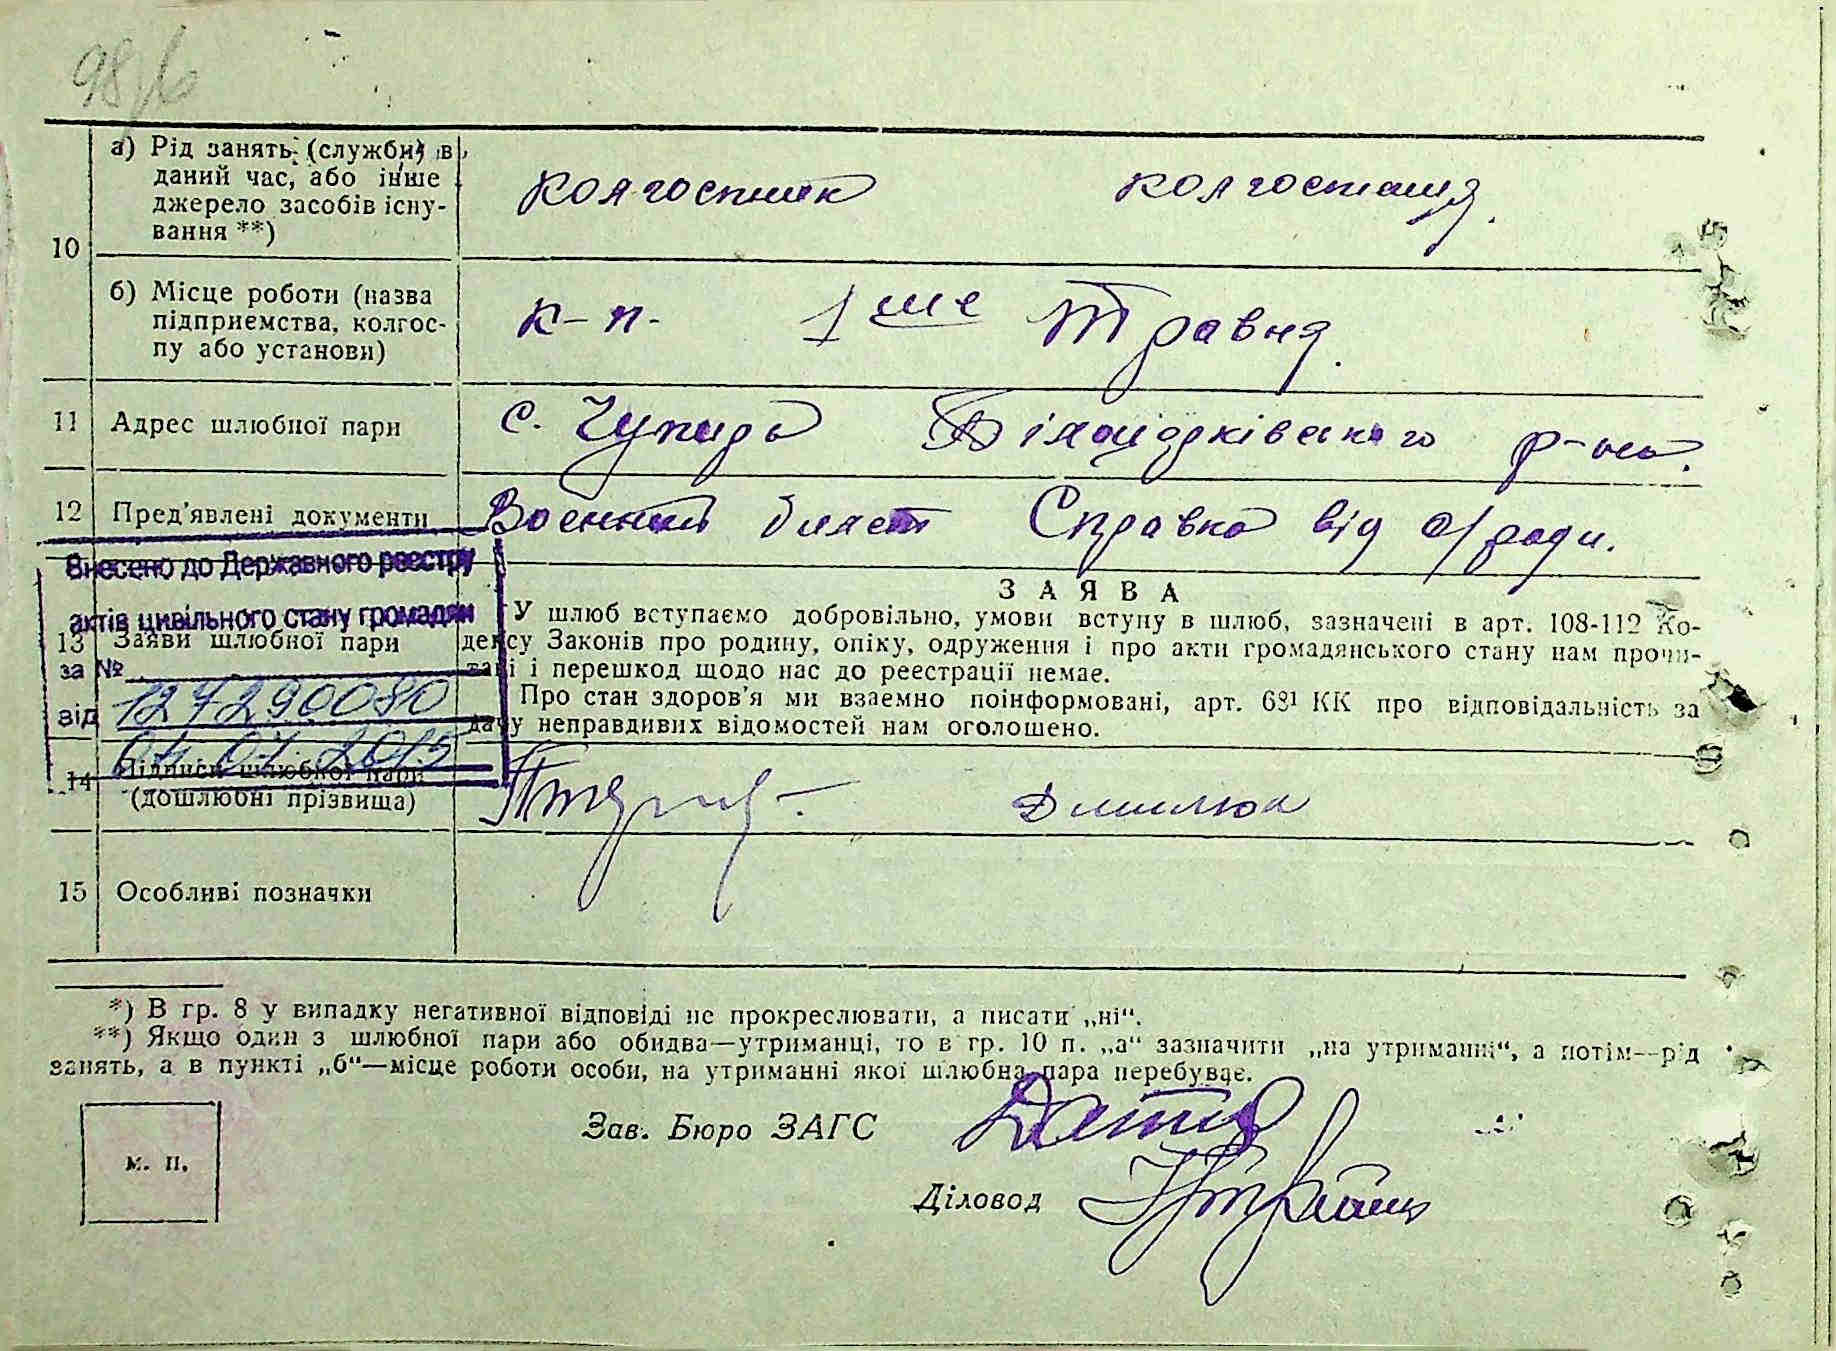 98/6
а) Рід занять (служби) в
даний час, або інше
джерело засобів існу-
вання **)
колгоспник колгоспниця.
10
б) Місце роботи (назва
підприємства, колгос-
пу або установи)
к-п. 1ше Травня.
11 Адрес шлюбної пари
с. Чупира Білоцерківського р-ну.
12 Пред'явлені документи
Военний билет Справка від с/ради.
Внесено до Державного реєстру
актів цивільного стану громадян
за №
127290080
від
13 Заяви шлюбної пари
ЗАЯВА
У шлюб вступаємо добровільно, умови вступу в шлюб, зазначені в арт. 108-112 Ко-
дексу Законів про родину, опіку, одруження і про акти громадянського стану нам прочи-
тані і перешкод щодо нас до реєстрації немає.
Про стан здоров'я ми взаємно поінформовані, арт. 68¹ КК про відповідальність за
дачу неправдивих відомостей нам оголошено.
14 Підписи шлюбної пари
(дошлюбні прізвища)
15 Особливі позначки
*) В гр. 8 у випадку негативної відповіді не прокреслювати, а писати „ні“.
**) Якщо один з шлюбної пари або обидва—утриманці, то в гр. 10 п. „а“ зазначити „на утриманні“, а потім—рід
занять, а в пункті „б“—місце роботи особи, на утриманні якої шлюбна пара перебуває.
Зав. Бюро ЗАГС
м. п.
Діловод